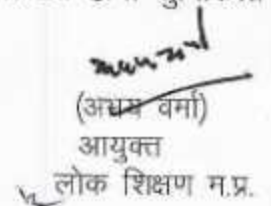 (अभय वर्मा)
आयुक्त
लोक शिक्षण म.प्र.